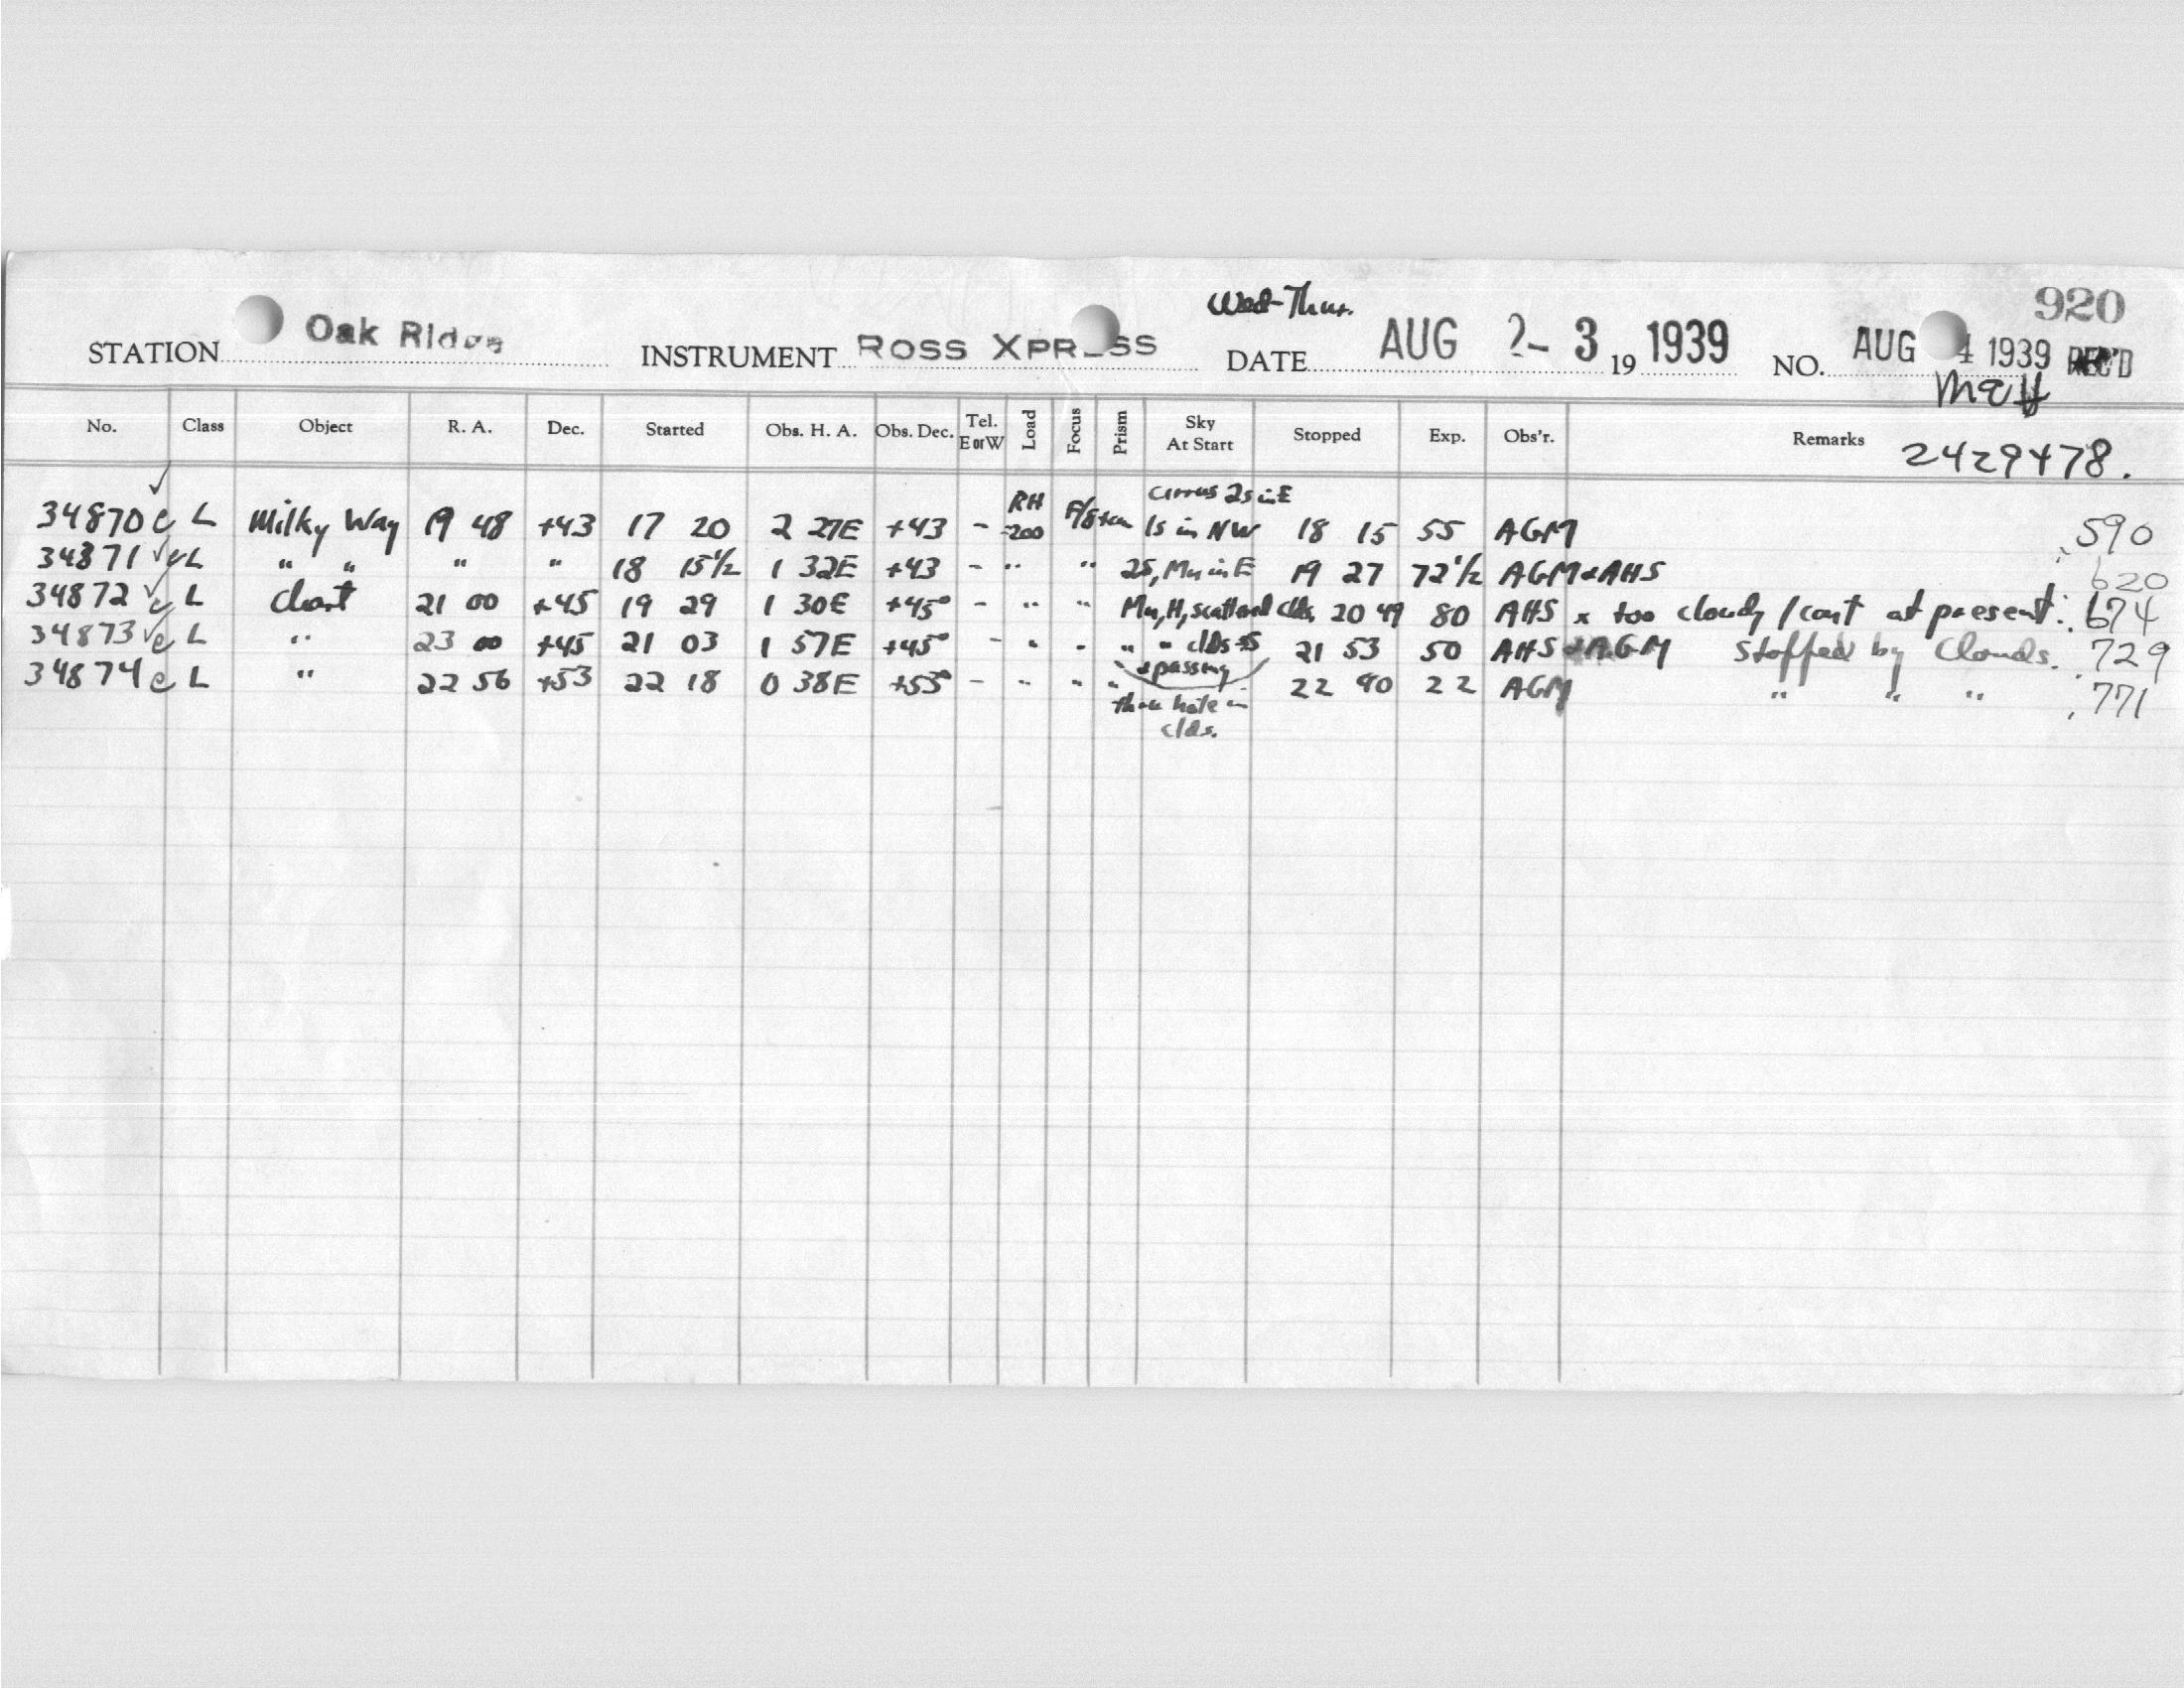 920
Wed-Thur.
STATION Oak Ridge INSTRUMENT ROSS XPRESS DATE AUG 2-3, 19 1939 NO. AUG 4 1939 REC'D
No. Class Object R. A. Dec. Started Obs. H. A. Obs. Dec. Tel. E or W Load Focus Prism Sky At Start Stopped Exp. Obs'r. Remarks
2429478.
RH cirrus 2s in E
34870 c L Milky Way 19 48 +43 17 20 2 27E +43 - 200 1s in NW 18 15 55 AGM .590
34871 c L " " " " 18 15½ 1 32E +43 - " " 2s, Mn in E 19 27 72½ AGM+AHS .620
34872 c L Chart 21 00 +45 19 29 1 30E +45° - " " Mn, H, scattered clds. 20 49 80 AHS x too cloudy / cont at present: .674
34873 c L " 23 00 +45 21 03 1 57E +45° - " " " " clds 21 53 50 AHS+AGM Stopped by Clouds. .729
+ passing
34874 c L " 22 56 +53 22 18 0 38E +53° - " " " 22 40 22 AGM " " " .771
thru hole in
clds.